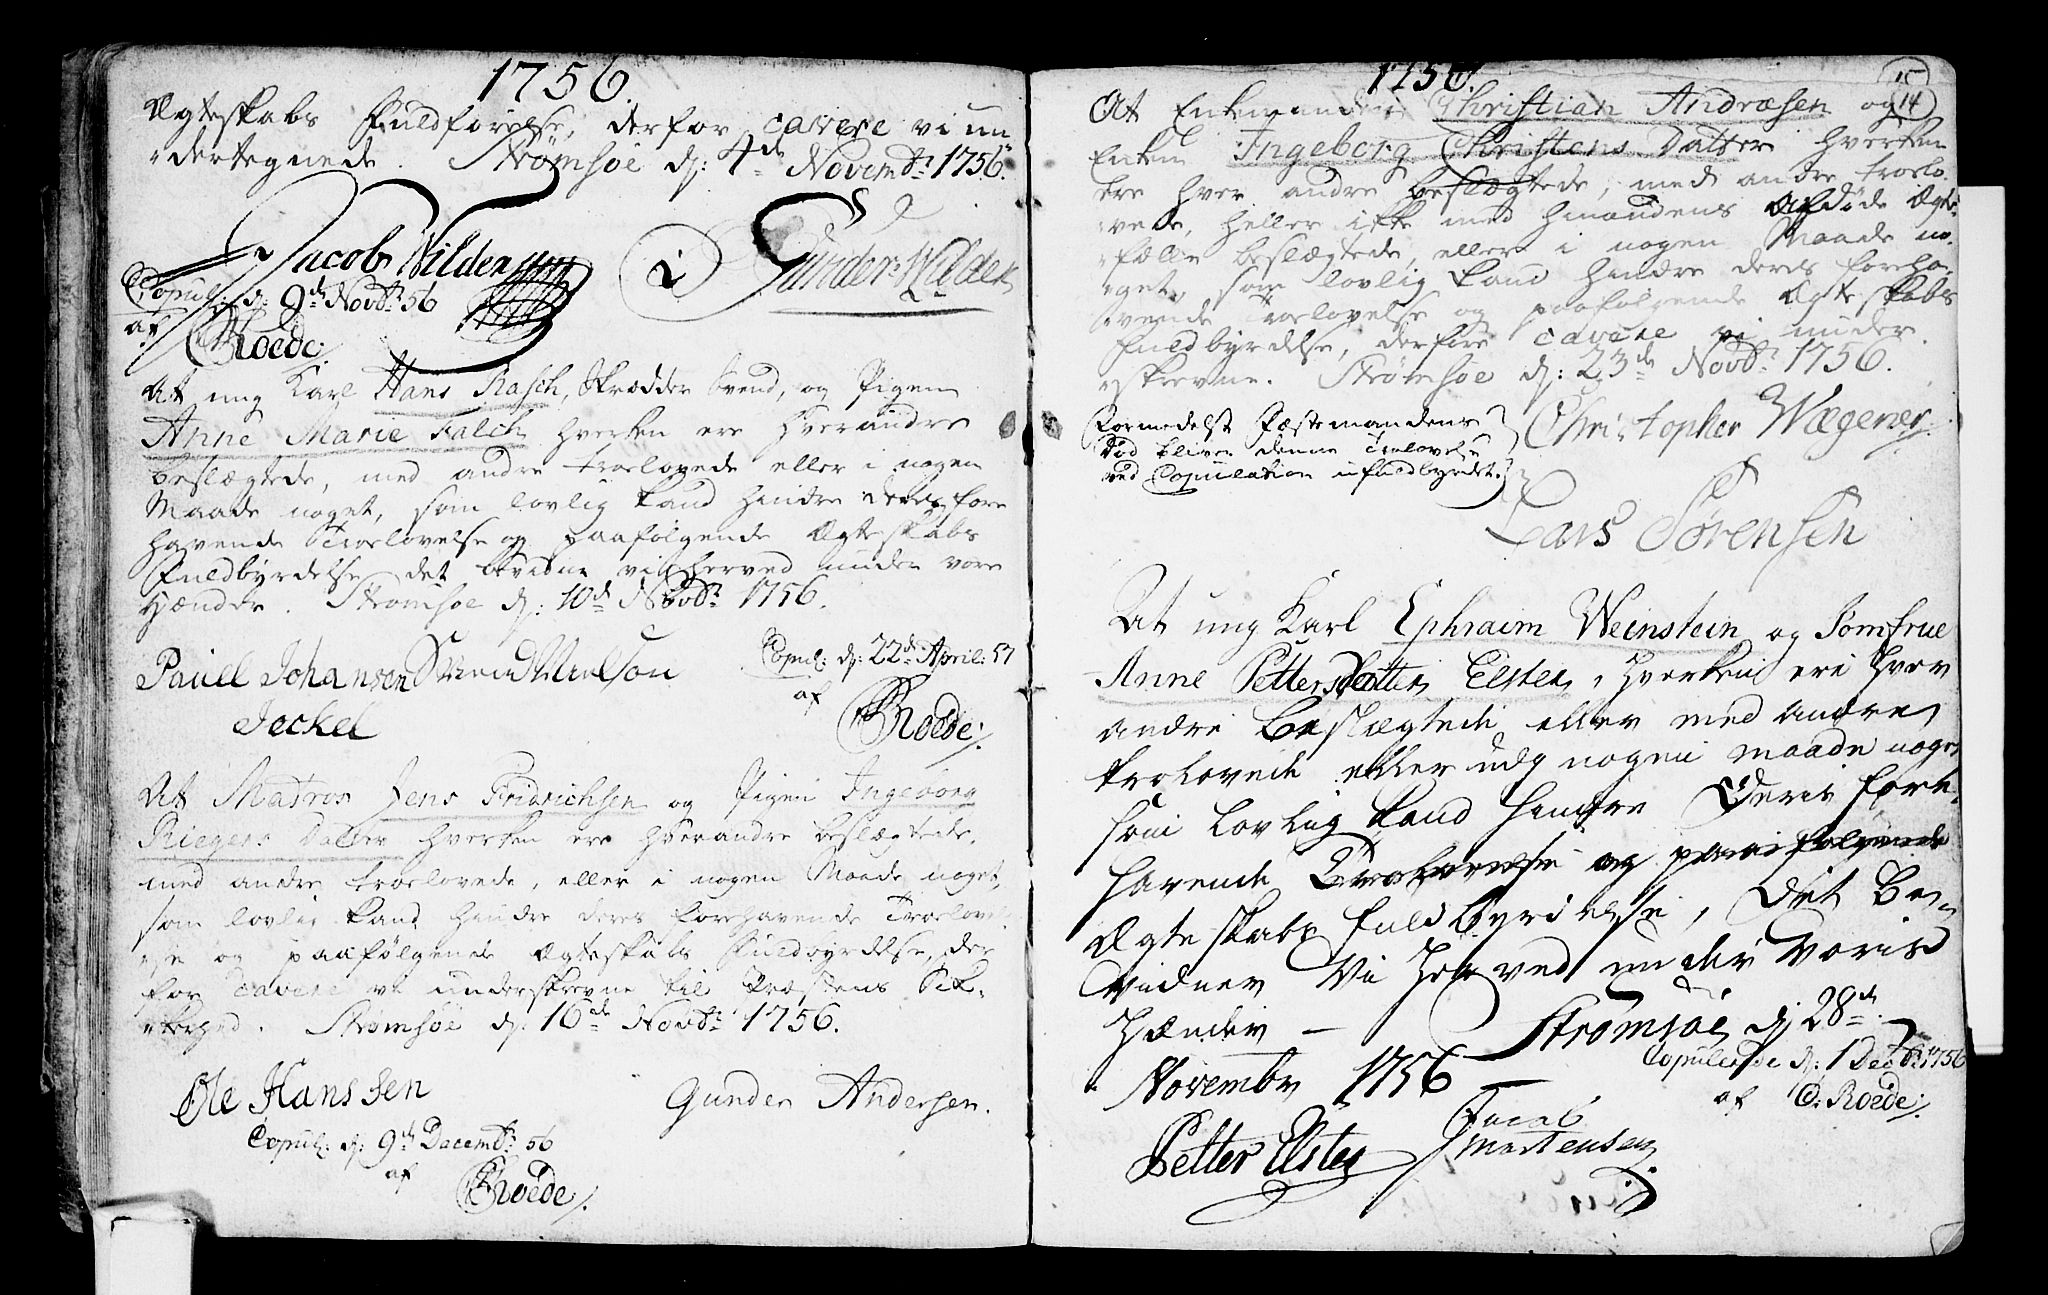 1756.
Ægteskabs Fuldførelse, derfor cavere vi un
dertegnede. Strømsøe d: 4de Novembr: 1756.
Jacob Nilder Gunder Nilder
Copul: d: 9de Novbr: 56
af
CRoede/.
At ung Karl Hans Rasch, Skrædder Svend, og Pigen
Anne Marie Falch hverken ere hverandre
beslægtede, med andre troelovede eller i nogen
Maade noget, som lovlig kand hindre deres fore
havende Troelovelse og paafølgende Ægteskabs
Fuldbyrdelse det bevidne vi herved under vore
Hænder. Strømsøe d: 10d Novbr: 1756.
Pauell Johansen
Jeckel
Copul: d: 22de April: 57
af
CRoede/.
At Matros Jens Fridrichsen og Pigen Ingeborg
Riegers Datter hverken ere hverandre beslægtede,
med andre troelovede, eller i nogen Maade noget,
som lovlig kand hindre deres forehavende Troelovel
se og paafølgende Ægteskabs Fuldbyrdelse, der
for cavere vi underskrevne til Præstens Sik
kerhed. Strømsøe d: 16de Novbr: 1756.
Ole Hanssen Gunder Andersen.
Copul: d: 9de Decembr: 56
af
CRoede/.
1756.
15
14
At Enkemanden Christian Andræsen og
Enken Ingeborg Christens Datter hverken
ere hver andre beslægtede, med andre troelo
vede, heller ikke med hinandens Afdøde Ægte
fælle beslægtede, eller i nogen Maade no
get, som lovlig kand hindre deres foreha
vende Troelovelse og paafølgende Ægteskabs
Fuldbyrdelse, derfore cavere vi under
skrevne. Strømsøe d: 23de Novbr: 1756.
Formedelst Fæstemandens
Død bliver denne Troelovelse
ved Copulation ufuldbyrdet.
Christopher Wægener
Lars Sørensen
At ung Karl Ephraim Weinstein og Jomfrue
Anne Petters Datter Elster, hverken ere hver
andre Beslægtede eller med andre
trolovede eller udj nogen maade noget
som Lovlig kand hindre Deris fore
havende Trolovelse og paa følgende
Ægteskabs fuldbyrdelse, Det Be
vidner Vi Her ved under Voris
Hænder — Strømsøe dj 28de
November 1756
Copulerede d: 1 Decbr: 1756
af C: Roede/.
Petter Elster Jacob
Mortensen